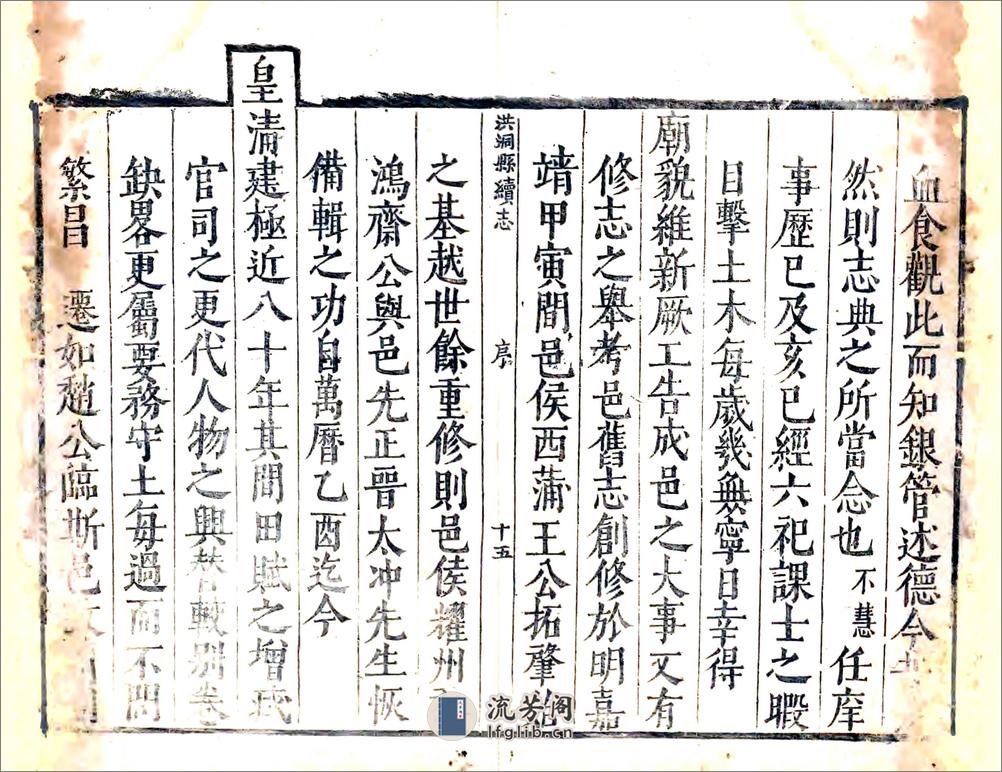 血食觀此而知銀管述德今
然則志典之所當念也不慧任庠
事歷巳及亥已經六祀課士之暇
日擊土木每歲幾無寧日幸得
廟貌維新厥工告成邑之大事又有
修志之舉考邑舊志創修於明嘉
靖甲寅間邑侯西蒲王公拓肇始
洪洞縣續志 序 十五
之基越世餘重修則邑侯耀州
鴻齋公與邑先正晉太冲先生恢
備輯之功自萬曆乙酉迄今
皇淸建極近八十年其間田賦之增
官司之更代人物之興替較別卷
缺畧更屬要務守土每過而不問
繁昌 遷如趙公臨斯邑
流芳阁
lfglib.cn